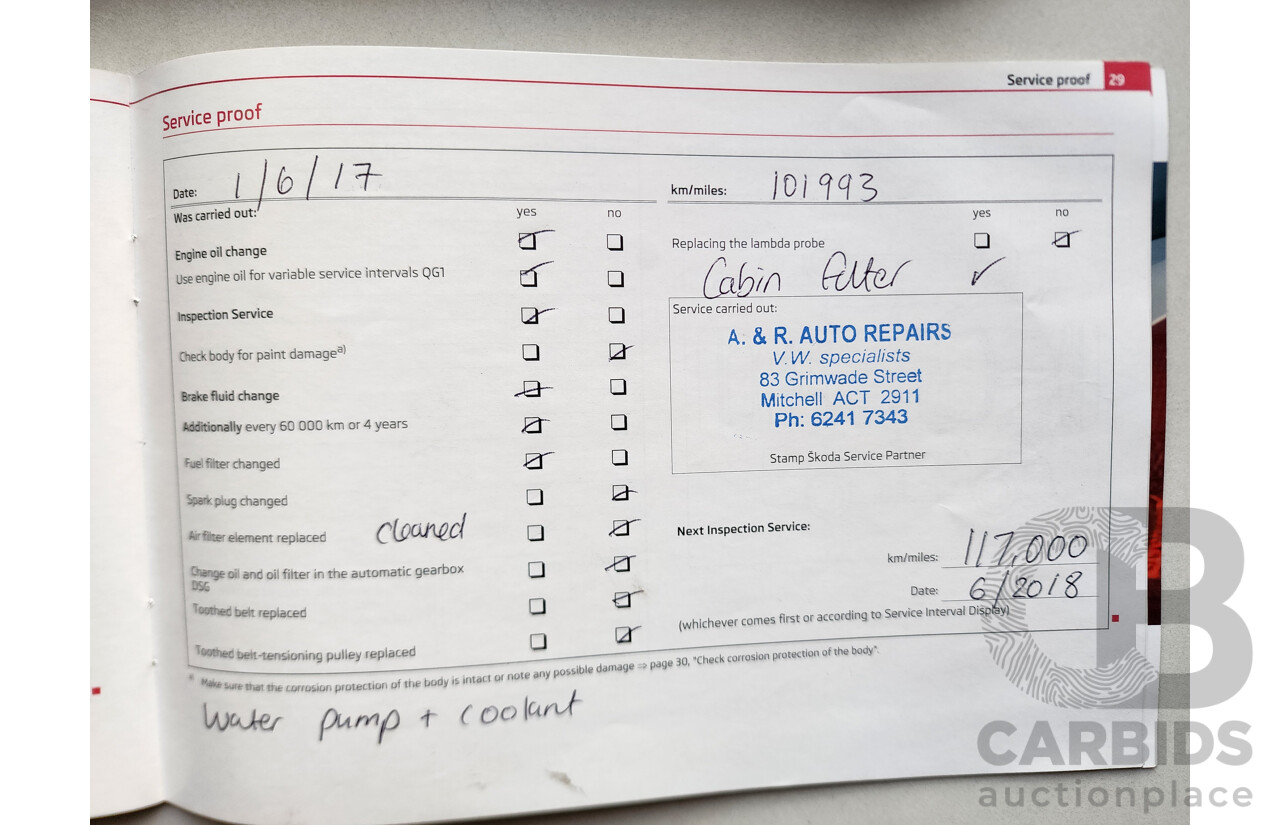 Service proof 29
Service proof
Date: 1/6/17
km/miles: 101993
Was carried out: yes no
yes no
Engine oil change
Replacing the lambda probe
Use engine oil for variable service intervals QG1
Cabin filter ✓
Inspection Service
Service carried out:
A. & R. AUTO REPAIRS
V.W. specialists
83 Grimwade Street
Mitchell ACT 2911
Ph: 6241 7343
Stamp Škoda Service Partner
Check body for paint damage a)
Brake fluid change
Additionally every 60 000 km or 4 years
Fuel filter changed
Spark plug changed
Air filter element replaced cleaned
Change oil and oil filter in the automatic gearbox
DSG
Toothed belt replaced
Toothed belt-tensioning pulley replaced
Next Inspection Service:
km/miles: 117,000
Date: 6/2018
(whichever comes first or according to Service Interval Display)
a) Make sure that the corrosion protection of the body is intact or note any possible damage ⇒ page 30, "Check corrosion protection of the body".
Water pump + coolant
CARBIDS
auctionplace